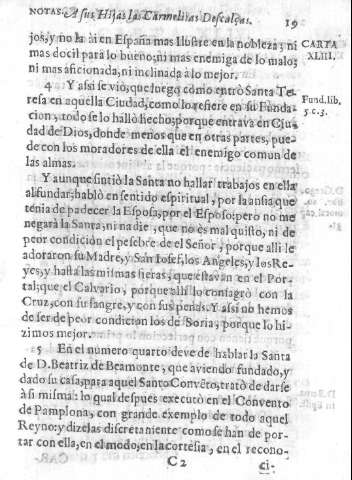 NOTAS. A sus Hijas las Carmelitas Descalças. 19
jos, y no la ai en España mas Ilustre en la nobleza; ni
mas docil para lo bueno; ni mas enemiga de lo malo;
ni mas aficionada, ni inclinada à lo mejor.
CARTA
XLIII.
4 Y assi se viò, que luego como entrò Santa Te-
resa en aquella Ciudad, como lo refiere en su Funda-
cion, todo se lo hallò hecho; porque entrava en Ciu-
dad de Dios, donde menos que en otras partes, pue-
de con los moradores de ella el enemigo comun de
las almas.
Fund. lib.
5. c. 3.
Y aunque sintiò la Santa no hallar trabajos en ella
al fundar; hablò en sentido espiritual, por la ansia que
tenia de padecer la Esposa, por el Esposo: pero no me
negarà la Santa, ni nadie, que no es mal quisto, ni de
peor condicion el pesebre de el Señor, porque alli le
adoraron su Madre, y San Iosef, los Angeles, y los Re-
yes, y hasta las mismas fieras, que estavan en el Por-
tal; que el Calvario, porque alli lo consagrò con la
Cruz, con su sangre, y con sus penas. Y assi no hemos
de ser de peor condicion los de Soria, porque lo hi-
zimos mejor.
5 En el numero quarto deve de hablar la Santa
de D. Beatriz de Beamonte, que aviendo fundado, y
dado su casa, para aquel Santo Convẽto, tratò de darse
à si misma: lo qual despues executò en el Convento
de Pamplona, con grande exemplo de todo aquel
Reyno: y dizelas discretamente como se han de por-
tar con ella, en el modo, en la cortesia, en el recono-
C2 ci-